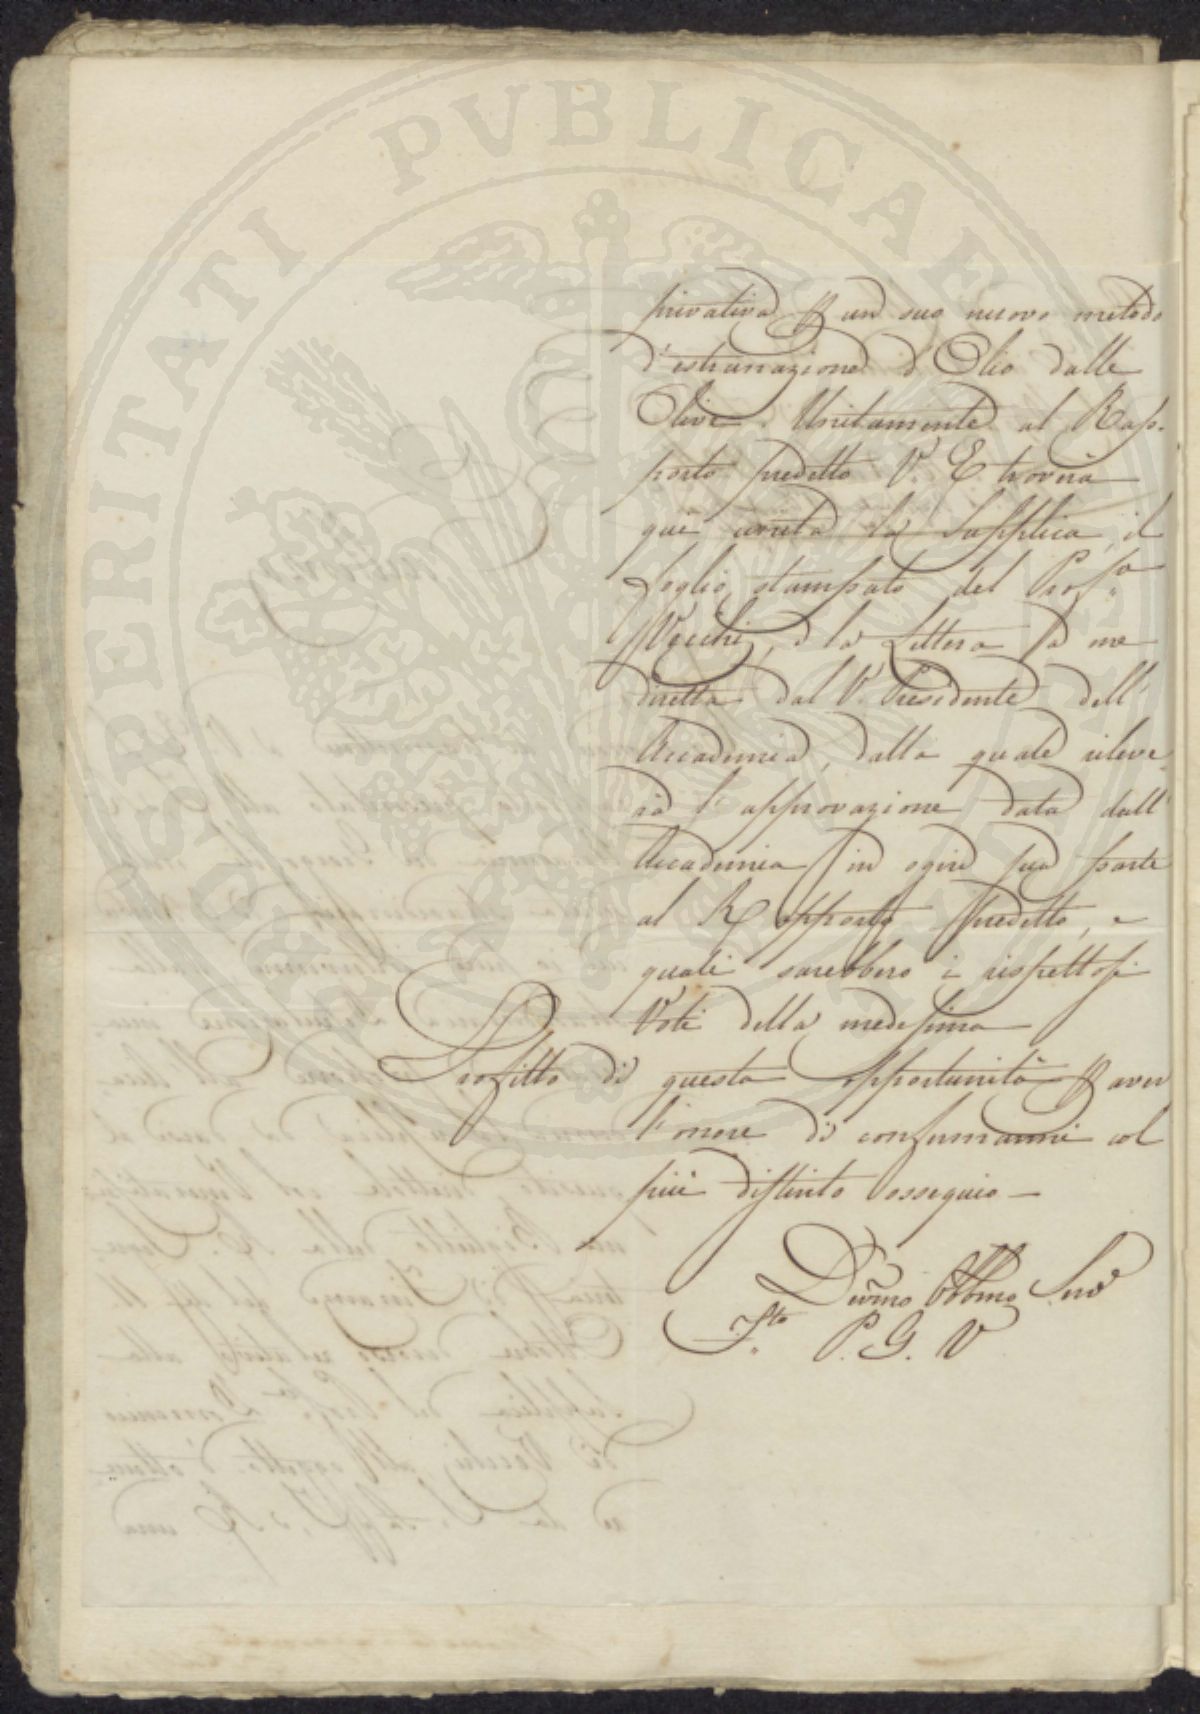 PROSPERITATI PVBLICAE
privativa p un suo nuovo metodo
d'estrazione d'Olio dalle
Olive. Unitamente al Rap-
porto predetto V. E. troverà
qui unita la Supplica, il
foglio stampato del Prof.
Vecchi, e la Lettera a me
diretta dal V. Presidente dell'
Accademia, dalla quale rileve-
rà l'approvazione data dall'
Accademia in ogni sua parte
al Rapporto predetto, e
quali sarebbero i rispettosi
Voti della medesima
Profitto di questa opportunità p aver
l'onore di confermarmi col
più distinto ossequio —
Devmo Obbmo Serv
Fto P. G. V